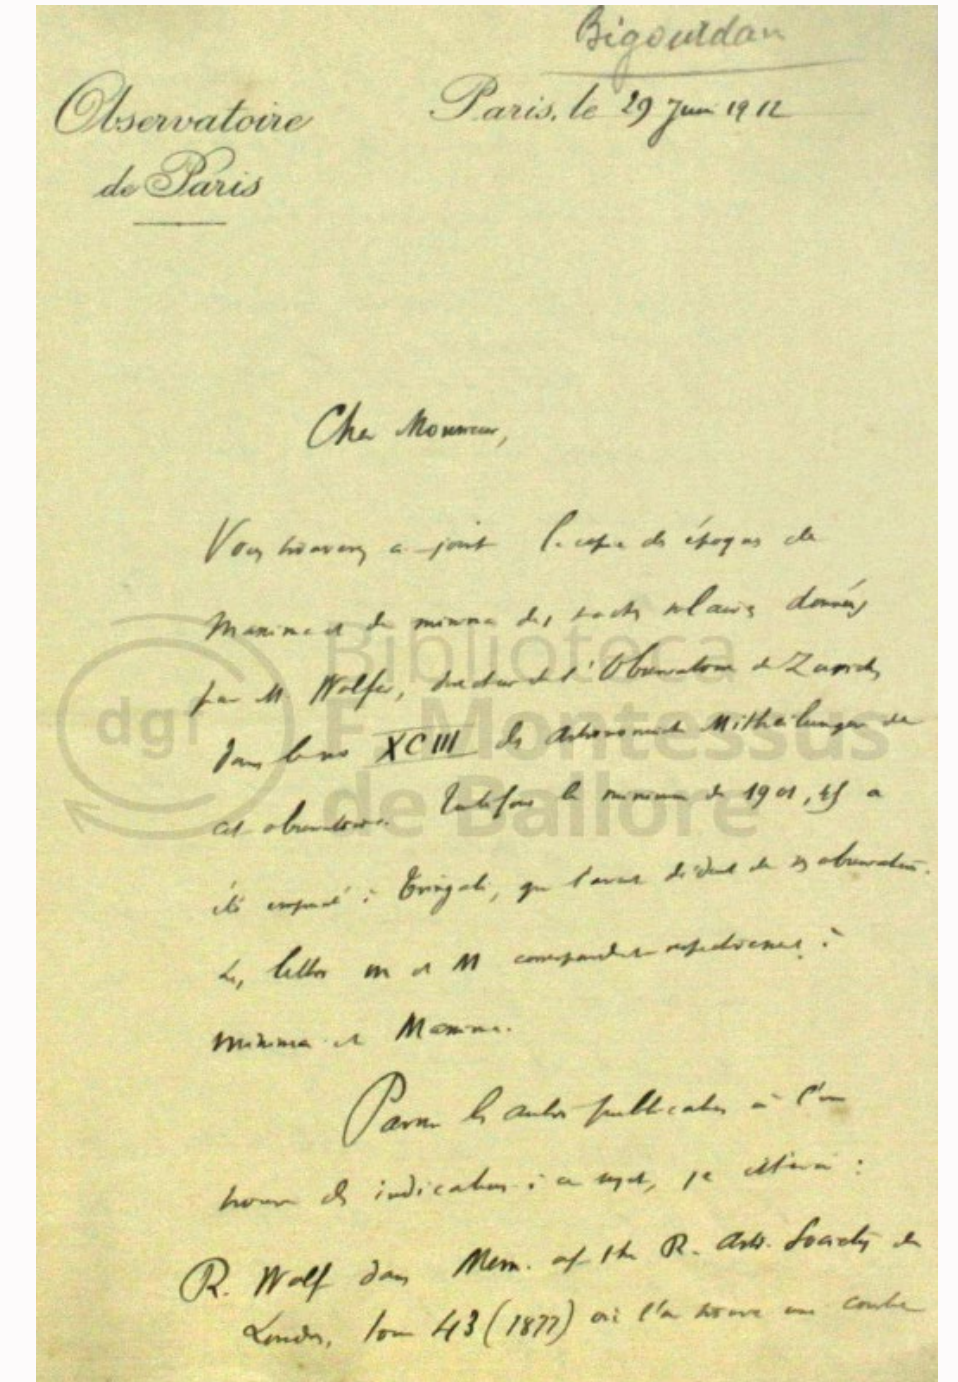 Bigourdan
Observatoire
de Paris
Paris, le 29 Juin 1912
Cher Monsieur,
Vous trouverez ci-joint la copie des époques de
Maxima et de minima des taches solaires données
par M. Wolfer, directeur de l'Observatoire de Zurich,
dans le no XCIII des Astronomische Mittheilungen de
cet observatoire. Toutefois le minimum de 1901,45 a
été emprunté à Tringali, qui l'avait déduit de ses observations.
Les lettres m et M correspondent respectivement à
minima et Maxima.
Parmi les autres publications où l'on
trouve des indications à ce sujet, je citerai :
R. Wolf dans Mem. of the R. Astr. Society de
Londres, tom 43 (1877) où l'on trouve une courbe
dgf
Biblioteca
F. Montessus
de Ballore